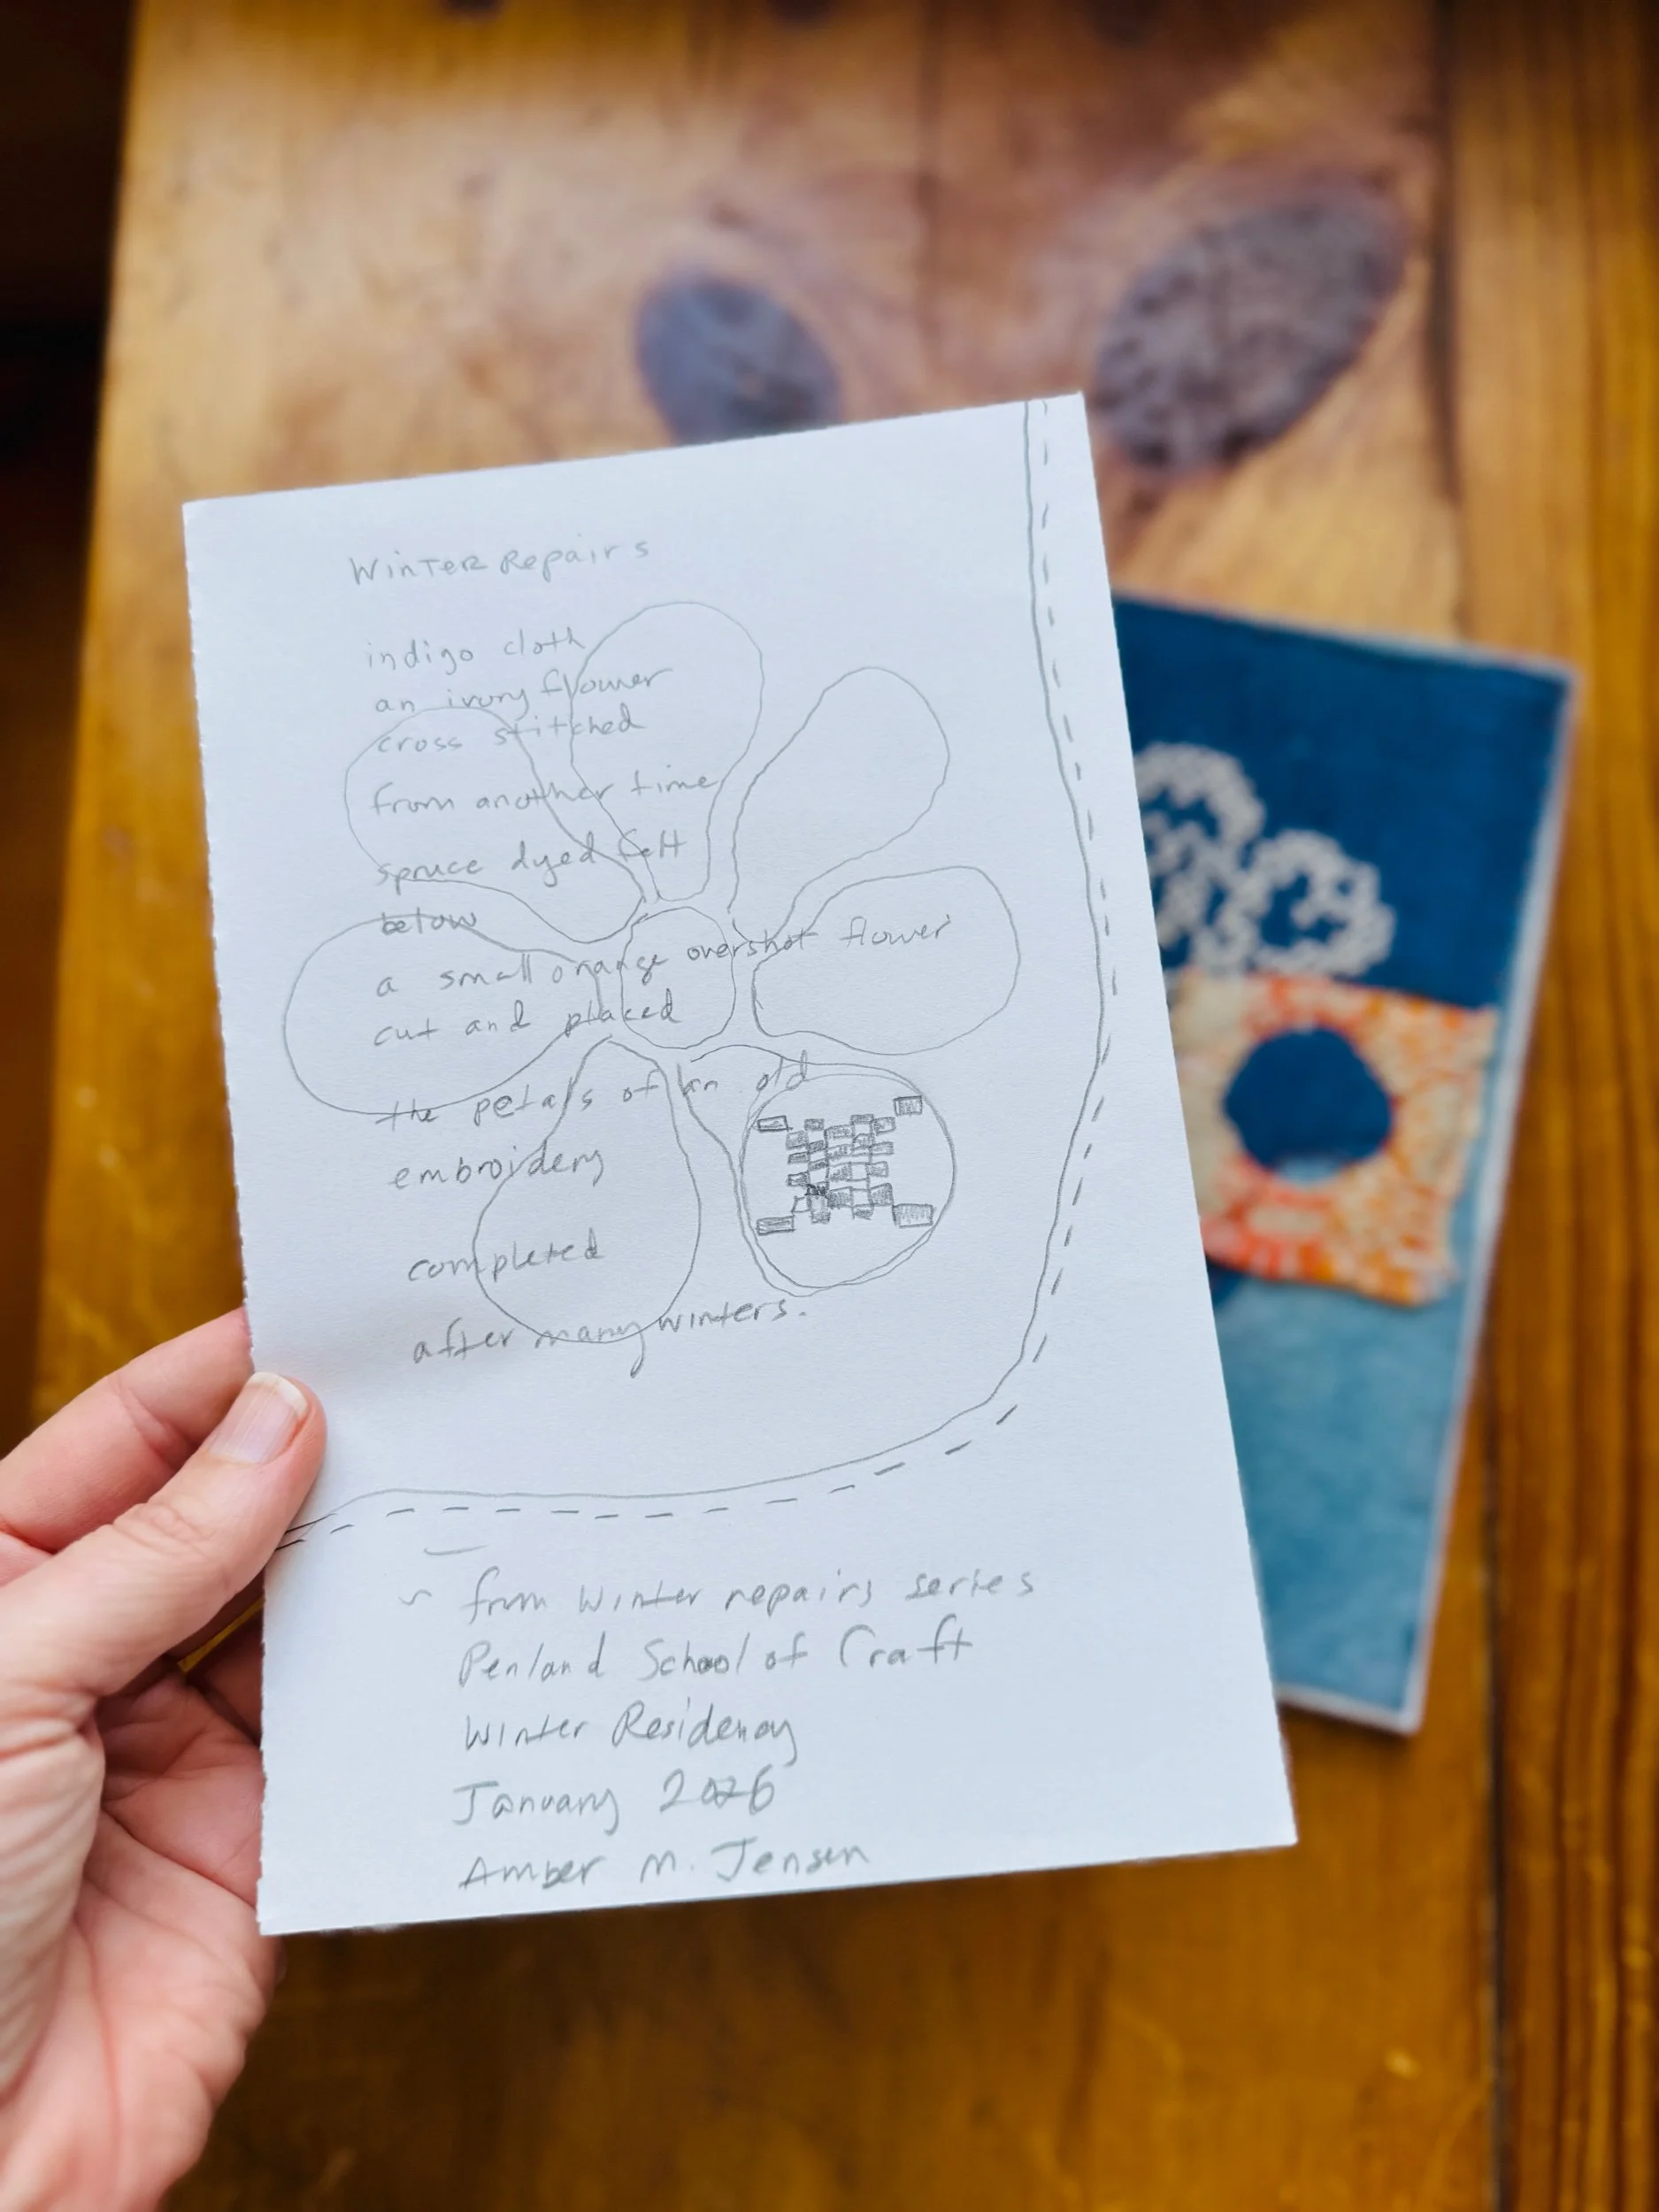 Winter Repairs
indigo cloth
an ivory flower
cross stitched
from another time
spruce dyed felt
below
a small orange overshot flower
cut and placed
the petals of an old
embroidery
completed
after many winters.
~ from Winter repairs series
Penland School of Craft
Winter Residency
January 2026
Amber M. Jensen